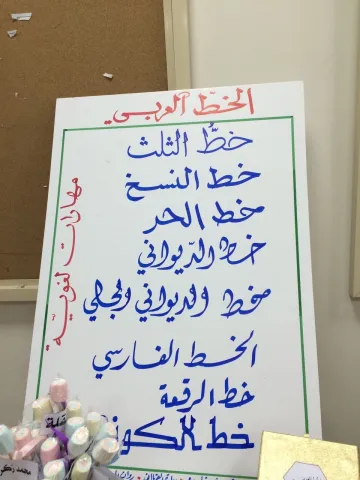 الخط العربي
مهارات لغوية
خطُّ الثلث
خط النسخ
خط الحر
خط الدّيواني
خط الديواني الجلي
الخط الفارسي
خط الرقعة
خط الكوفي